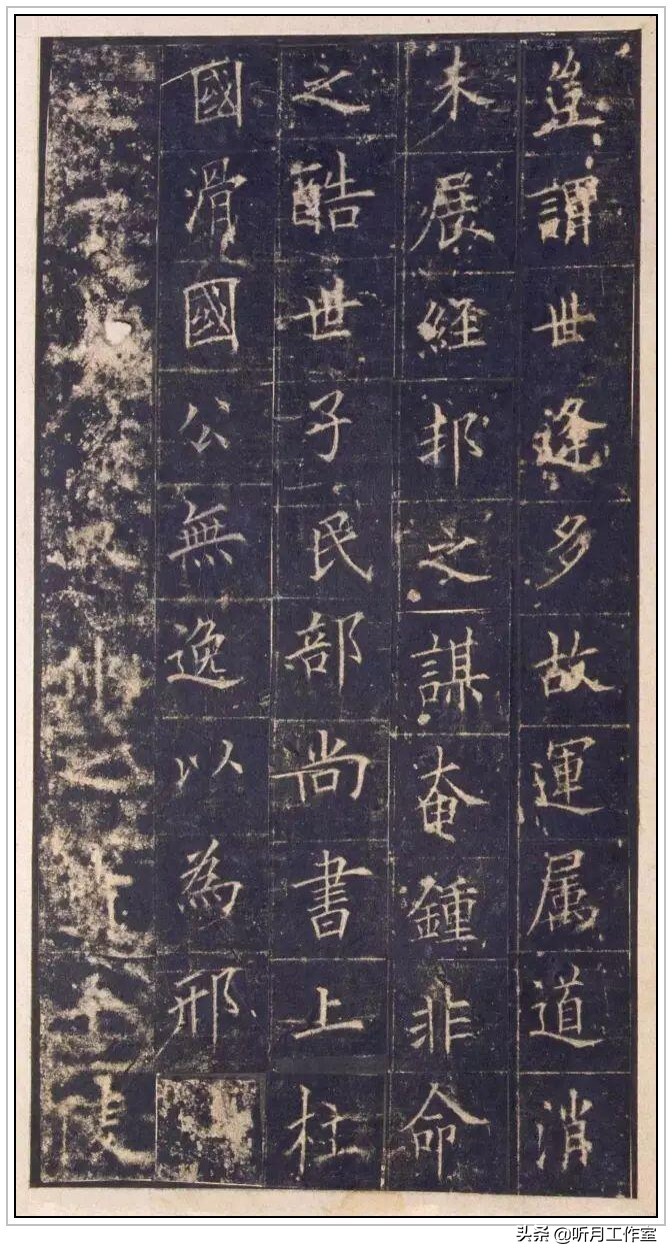 豈謂世逢多故運属道消
未展經邦之謀奄鍾非命
之酷世子民部尚書上柱
國滑國公無逸以為邢
仲之平陵
头条 @听月工作室